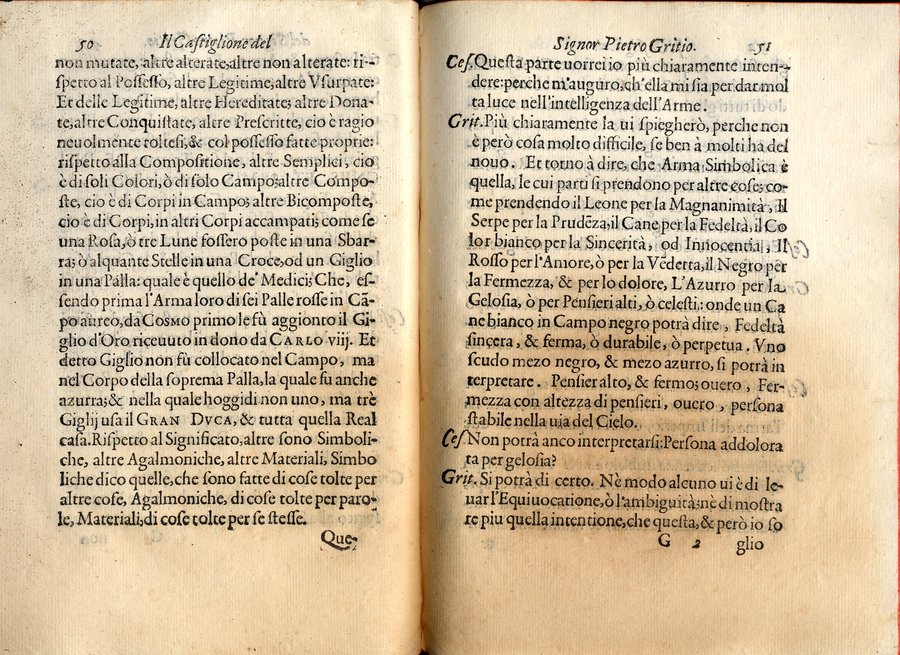 50 Il Castiglione del
non mutate, altre alterate, altre non alterate: ri-
spetto al Possesso, altre Legitime, altre Vsurpate:
Et delle Legitime, altre Hereditate; altre Dona-
te, altre Conquistate, altre Prescritte, cio è ragio
neuolmente toltesi, & col possesso fatte proprie:
rispetto alla Compositione, altre Semplici, cio
è di soli Colori, ò di solo Campo; altre Compo-
ste, cio è di Corpi in Campo; altre Bicomposte,
cio è di Corpi, in altri Corpi accampati; come se
una Rosa, ò tre Lune fossero poste in una Sbar-
ra; ò alquante Stelle in una Croce, od un Giglio
in una Palla: quale è quello de' Medici; Che, es-
sendo prima l'Arma loro di sei Palle rosse in Cā-
po aureo, da COSMO primo le fù aggionto il Gi-
glio d'Oro riceuuto in dono da CARLO viij. Et
detto Giglio non fù collocato nel Campo, ma
nel Corpo della soprema Palla, la quale fu anche
azurra; & nella quale hoggidi non uno, ma trè
Giglij usa il GRAN DVCA, & tutta quella Real
casa. Rispetto al Significato, altre sono Simboli-
che, altre Agalmoniche, altre Materiali, Simbo
liche dico quelle, che sono fatte di cose tolte per
altre cose, Agalmoniche, di cose tolte per paro-
le, Materiali, di cose tolte per se stesse.
Que-
Signor Pietro Gritio. 51
Ces. Questa parte uorrei io più chiaramente inten-
dere: perche m'auguro, ch'ella mi sia per dar mol
ta luce nell'intelligenza dell'Arme.
Grit. Più chiaramente la ui spiegherò, perche non
è però cosa molto difficile, se ben à molti ha del
nouo. Et torno à dire, che Arma Simbolica è
quella, le cui parti si prendono per altre cose; co-
me prendendo il Leone per la Magnanimità, Il
Serpe per la Prudēza, il Cane per la Fedeltà, il Co
lor bianco per la Sincerità, od Innocentia, Il
Rosso per l'Amore, ò per la Vēdetta, il Negro per
la Fermezza, & per lo dolore, L'Azurro per la
Gelosia, ò per Pensieri alti, ò celesti: onde un Ca
ne bianco in Campo negro potrà dire, Fedeltà
sincera, & ferma, ò durabile, ò perpetua. Vno
scudo mezo negro, & mezo azurro, si potrà in
terpretare. Pensier alto, & fermo; ouero, Fer-
mezza con altezza di pensieri, ouero, persona
stabile nella uia del Cielo.
Ces. Non potrà anco interpretarsi: Persona addolora
ta per gelosia?
Grit. Si potrà di certo. Nè modo alcuno ui è di le-
uar l'Equiuocatione, ò l'ambiguità; nè di mostra
re piu quella intentione, che questa, & però io so
G 2 glio